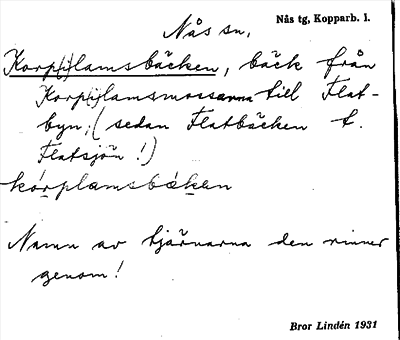 Nås sn,
Nås tg, Kopparb. l.
Korp(i)lamsbäcken, bäck från
Korp(i)lamsmossarna till Flat-
byn; (sedan Flatbäcken t.
Flatsjön!)
kórplamsbäken
Namn av tjärnarna den rinner
genom!
Bror Lindén 1931